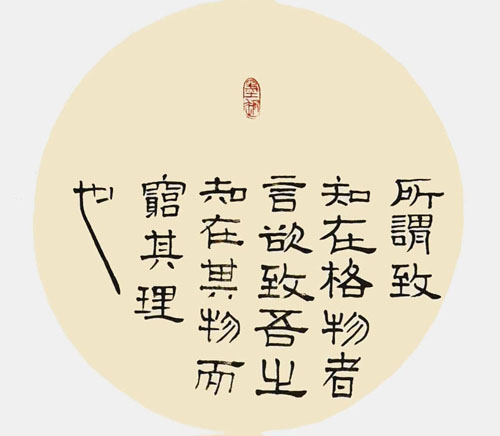 所謂致
知在格物者
言欲致吾之
知在其物而
窮其理
也